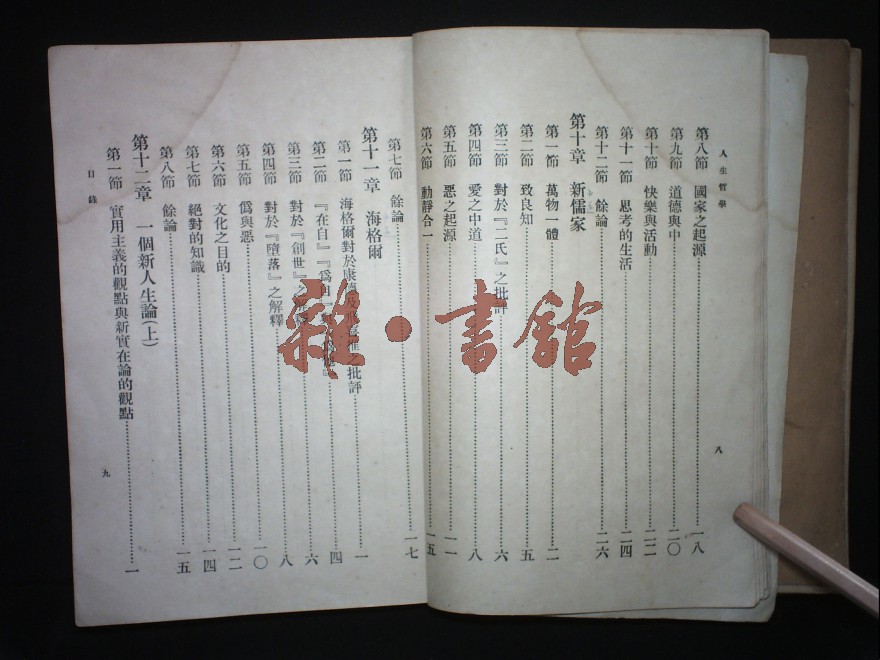 人生哲學
第八節 國家之起源 一八
第九節 道德與中 二〇
第十節 快樂與活動 二二
第十一節 思考的生活 二四
第十二節 餘論 二六
第十章 新儒家
第一節 萬物一體 二
第二節 致良知 五
第三節 對於『二氏』之批評 六
第四節 愛之中道 八
第五節 惡之起源 一一
第六節 動靜合一 一五
八
第七節 餘論 一七
第十一章 海格爾 一
第一節 海格爾對於康德及 批評
第二節 『在自』『爲自 四
第三節 對於『創世』之解釋 六
第四節 對於『墮落』之解釋 八
第五節 爲與惡 一〇
第六節 文化之目的 一二
第七節 絕對的知識 一四
第八節 餘論 一五
第十二章 一個新人生論(上)
第一節 實用主義的觀點與新實在論的觀點 一
目錄
九
雜·書館